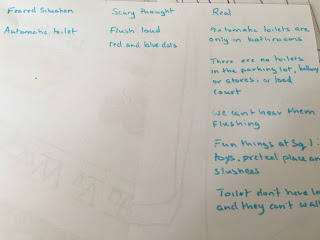 Feared Situation
Scary thought
Real
Automatic toilet
Flush loud
red and blue dots
Automatic toilets are
only in bathrooms
There are no toilets
in the parking lot,
or stores, or food
court
We can't hear them
flushing
Fun things at Sq. 1:
toys, pretzel place an
slushees
Toilet don't have
and they can't wal